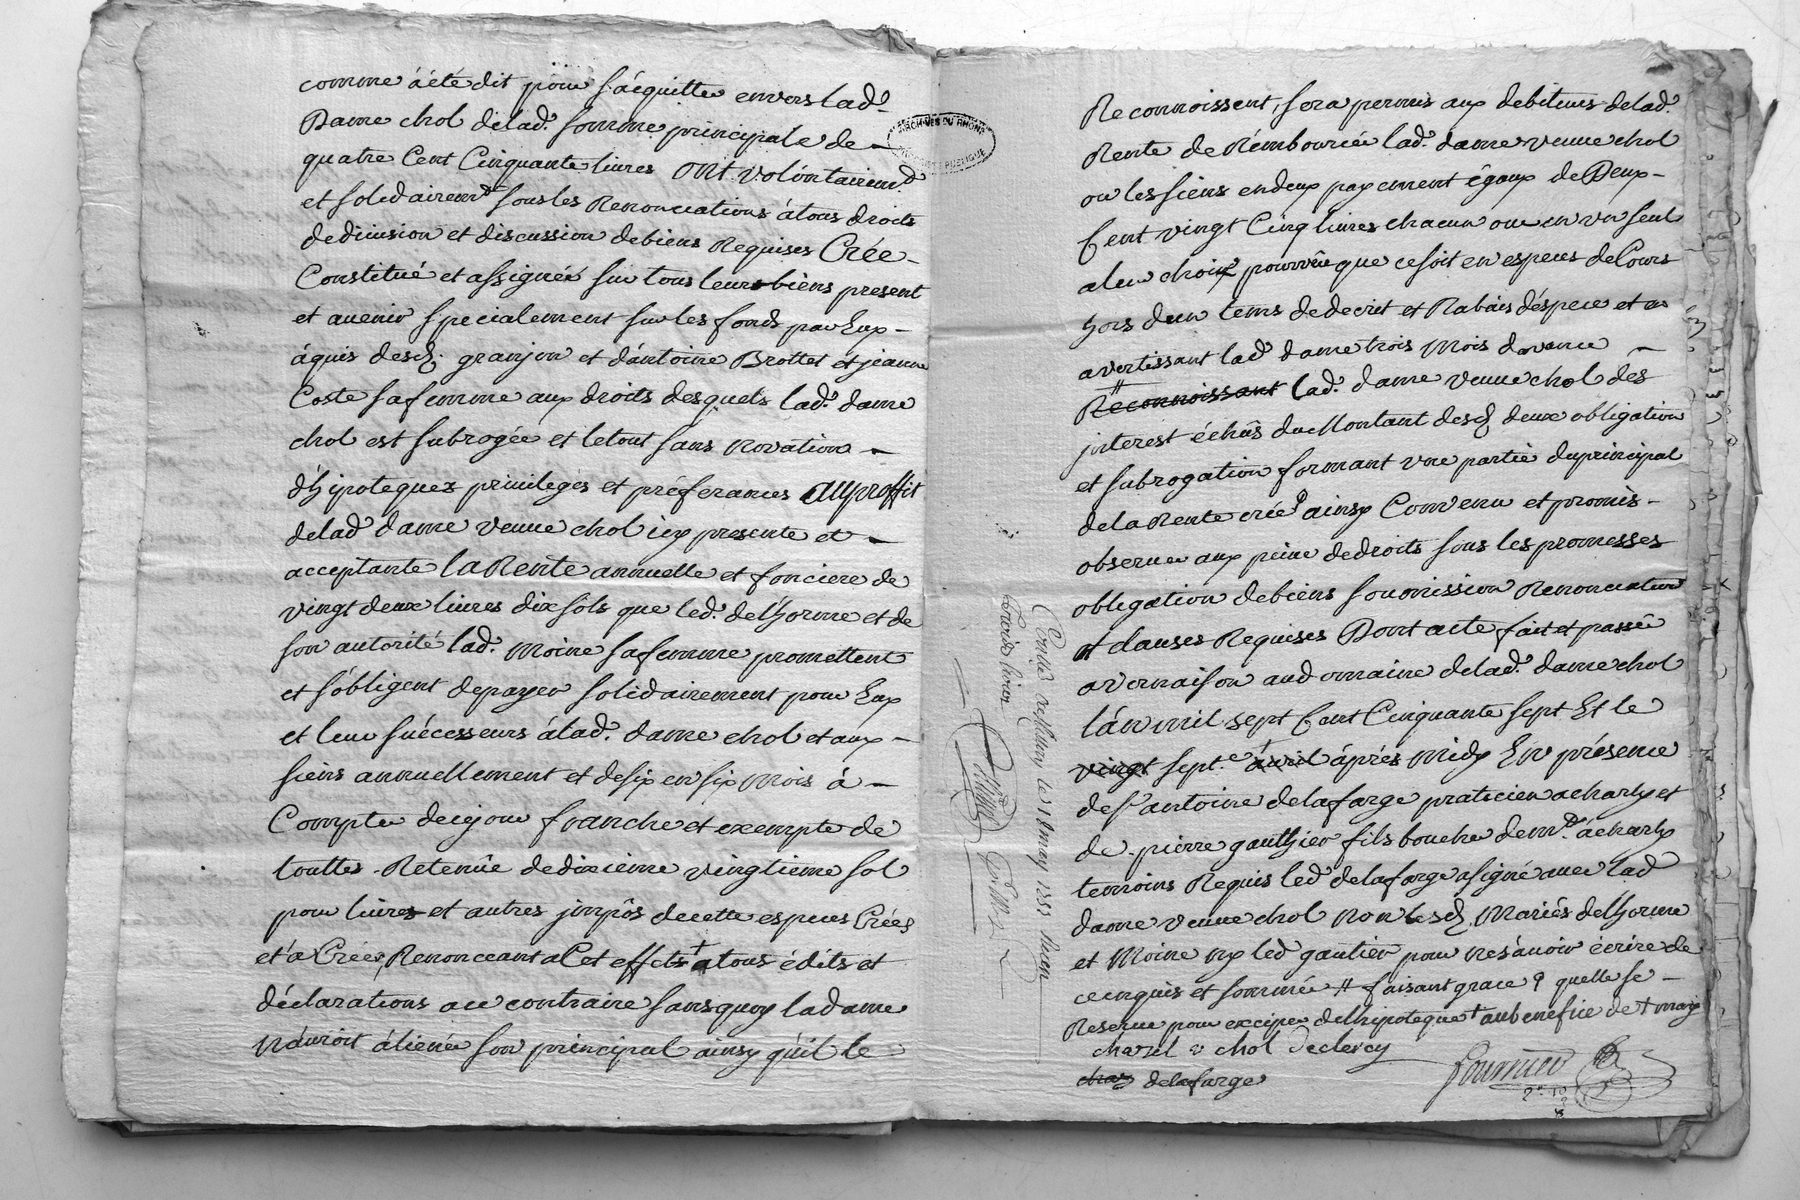 comme a été dit pour s'acquitter envers lad.
Dame chol de lad. somme principale de
quatre Cent Cinquante livres ont volontairem.t
et solidairem.t sous les Renonciations a tous droits
de division et discussion de biens Requises Crée
Constitué et assignée sur tous leurs biens present
et avenir specialement sur les fonds par Eux
aquis desd. granjon et d'antoine Brottet et jeanne
Coste sa femme aux droits desquels lad. dame
chol est subrogée et le tout sans novation
d'hipoteques privileges et préferances au proffit
de lad. dame veuve chol icy presente et
acceptante la Rente annuelle et fonciere de
vingt deux livres dix sols que led. delhorme et de
son autorité lad. Moine sa femme promettent
et s'obligent de payer solidairement pour Eux
et leur succésseurs à lad. dame chol et aux
siens annuellement et de six en six mois à
Compter de ce jour franche et exempte de
touttes Retenüe de dixieme vingtieme sol
pour livres et autres jmpôs de cette especes Créés
et a Créer, Renonceant a Cet effets + a tous édits et
déclarations au contraire sans quoy la dame
n'auroit áliené son principal ainsy qu'il le
ARCHIVES DU RHÔNE
Reconnoissent, sera permis aux debiteurs de lad.
Rente de Rémbourcée lad. dame veuve chol
ou les siens en deux payement égaux de Deux
Cent vingt Cinq livres chacun ou en un seul
a leur choix pourvû que ce soit en especes de Cours
hors d'un tems de decrit et Rabais d'éspece et en
avertissant lad. dame trois mois d'avance
# Reconnoissant lad. dame veuve chol des
jnterest échûs du Montant desd. deux obligation
et subrogation formant une partie du principal
de la Rente crée ainsy Convenu et promis
observer aux peine de droits sous les promesses
obligation de biens soumission Renonciation
et clauses Requises Dont acte fait et passé
a vernaison au domaine de lad. dame chol
l'an mil sept Cent Cinquante sept Et le
vingt sept.e avril áprés midy En présence
de s.r antoine delafarge praticien a charly et
de pierre gauthier fils boucher dem.t a charly
temoins Requis led. delafarge a signé avec lad
dame veuve chol non lesd. Mariés delhorme
et Moine ny led. gautier pour ne sávoir écrire de
ce enquis et sommé # faisant grace quelle se
Reserve pour exciper de lhypoteque + au benefice de
chazel v chol Declercy
chaz delafarge
fournier